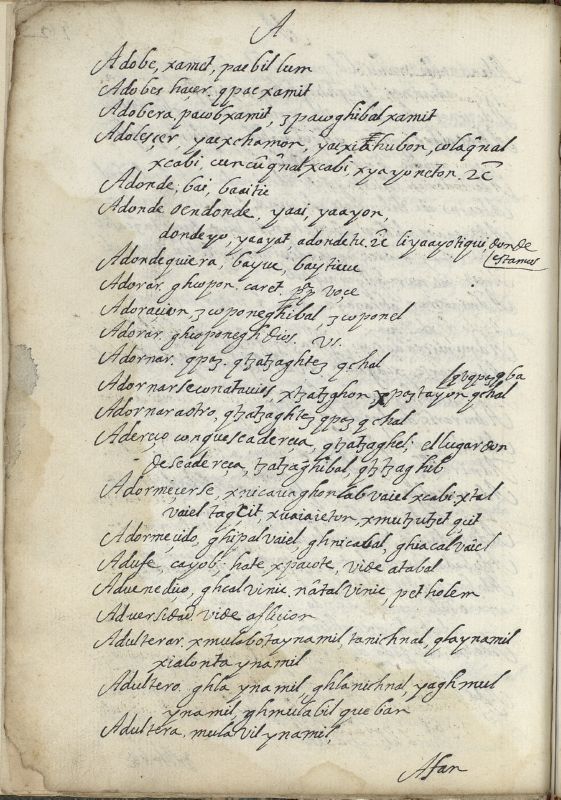 A
Adobe, xamit, paebil lum
Adobes haçer, qpac xamit
Adobera, pawbxamit, ȝ pawghibal xamit
Adolesçer, yaexchamon, yaexi hubon, colaqnal
xcabi, xcabi xyayoncton, &c
Adonde, bai, baaitic
Adonde oendonde, yaai, yaayon,
donde yo, yaayat, adonde tu, &c li yaayotiqui, donde
estamus
Adonde quiera, bayuc, bayticuc
Adorar, ghwpon. caret voçe
Adoraçion, ȝ wponeghibal, ȝ wponel
Adorar, ghwponegh Dios. Vs.
Adornar, qpaȝ. qtȝatȝaghteȝ qchal
qba
Adornarse con atauios, xtȝatȝghon xpaȝtayon qchal
Adornar a otro, qtȝatȝaghteȝ qpaȝ qchal
Adereço con que se adereça, qtȝatȝaghel; el lugar don
de se adereça, tȝatȝaghibal, qtȝtȝaghib
Adormeçerse, xnicauaghonlab vaiel xcabi xtal
vaiel taqcit, xuaiaieton, xmutȝutȝet qcit
Adormeçido, ghipal vaiel, ghnicabal, ghiacal vaiel
Adufe, cayob, hate, xpawte, vide atabal
Aduenediço, ghcalvinic, nâtal vinic, pet holem
Adversidad. vide afliçion
Adulterar, xmulabotaynamil, tanichnal, qlaynamil
xialonta ynamil
Adultero, ghla ynamil, ghlanichnal yaghmul
ynamil, ghmulabil que bar
Adultera. mulavil ynamil,
Afan